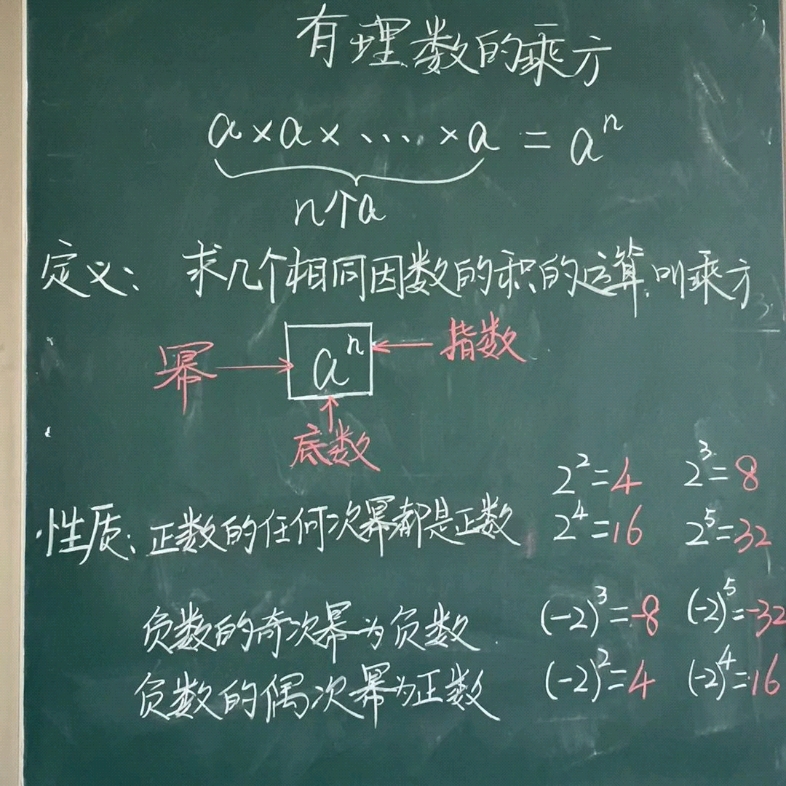 有理数的乘方
a×a×····×a=aⁿ
n个a
定义：求几个相同因数的积的运算,叫乘方
幂→aⁿ←指数
↑
底数
2²=4 2³=8
性质：正数的任何次幂都是正数 2⁴=16 2⁵=32
负数的奇次幂为负数 (-2)³=-8 (-2)⁵=-32
负数的偶次幂为正数 (-2)²=4 (-2)⁴=16